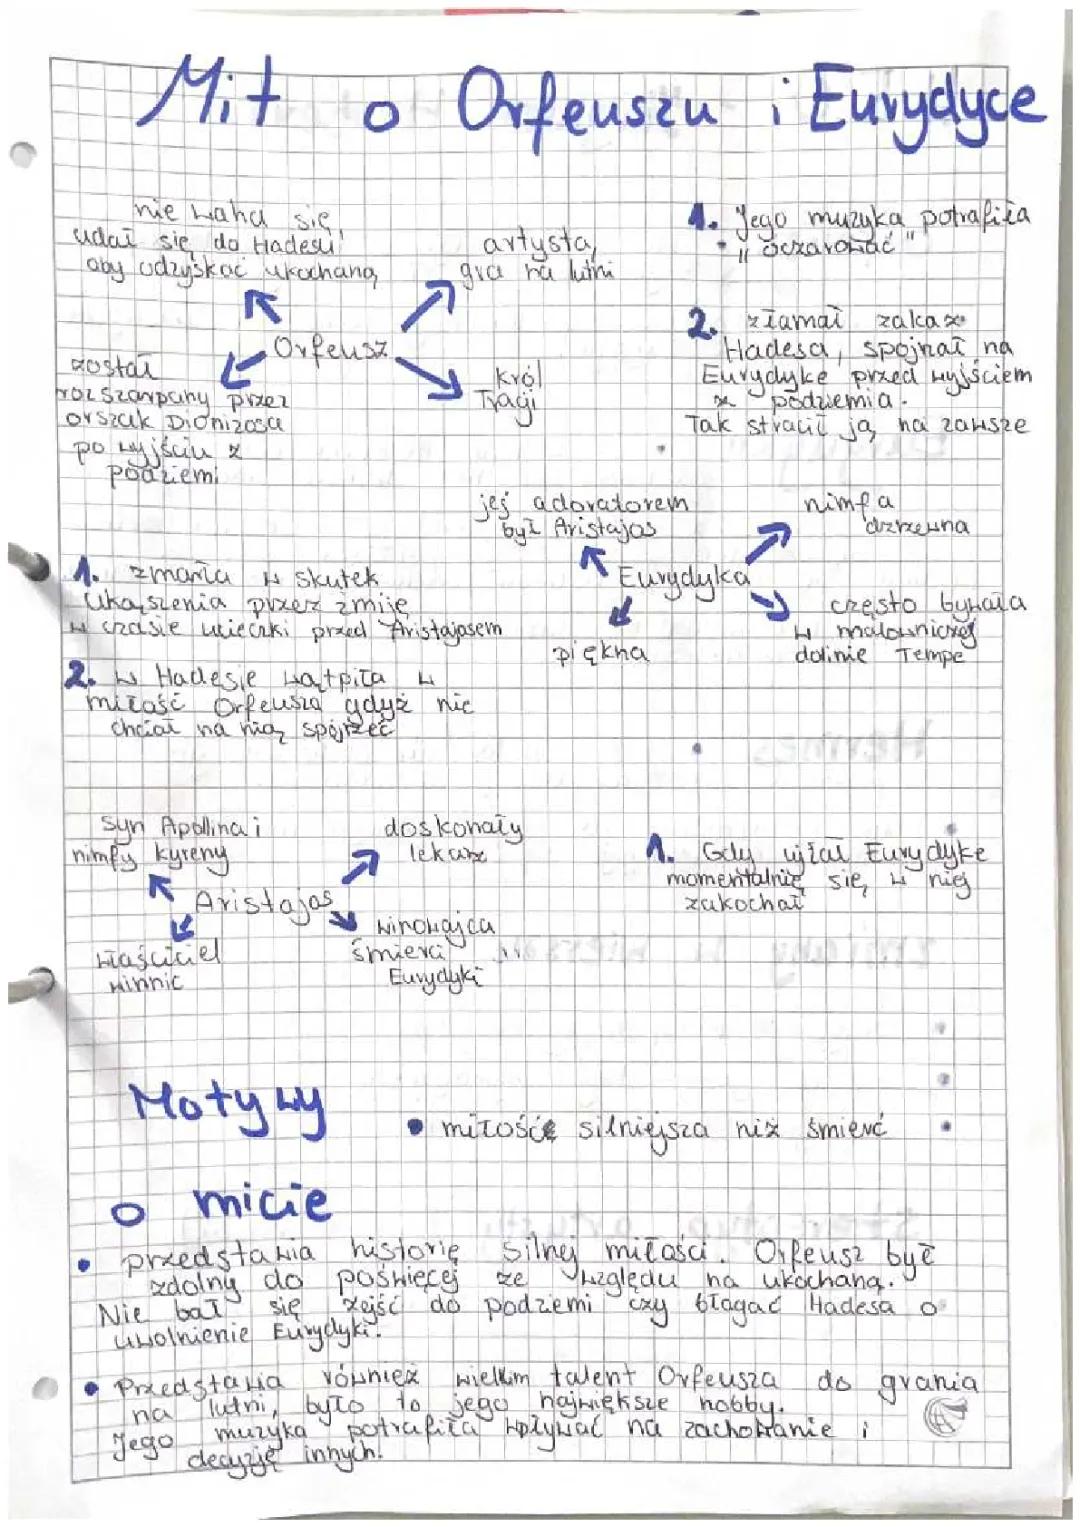 Mit o Orfeuszu i Eurydyce
nie waha się,
udał się do Hadesu,
aby odzyskać ukochaną
artysta,
gra na lutni
Orfeusz
został
rozszarpany przez
orszak Dionizosa
po wyjściu z
podziemi
król
Tragi
1. Jego muzyka potrafiła
"oczarować"
2. złamał zakaz
Hadesa, spojrzał na
Eurydykę przed wyjściem
z podziemia.
Tak stracił ją na zawsze
jej adoratorem
był Aristajos
nimfa
drzewna
Eurydyka
piękna
często bywała
w malowniczej
dolinie Tempe
1. zmarła w skutek
ukąszenia przez żmiję
w czasie ucieczki przed Aristajosem
2. w Hadesie wątpiła w
miłość Orfeusza gdyż nie
chciał na nią spojrzeć
syn Apollina i
nimfy kyreny
doskonały
lekarz
Aristajos
właściciel
winnic
winowajca
śmierci
Eurydyki
1. Gdy ujrał Eurydykę
momentalnie się w niej
zakochał
Motywy
o micie
• miłość silniejsza niż śmierć
• przedstawia historię silnej miłości. Orfeusz był
zdolny do poświęcej ze względu na ukochaną.
Nie bał się zejść do podziemi czy błagać Hadesa o
uwolnienie Eurydyki.
• Przedstawia również wielkim talent Orfeusza do grania
na lutni, było to jego największe hobby.
Jego muzyka potrafiła wpływać na zachowanie i
decyzję innych.